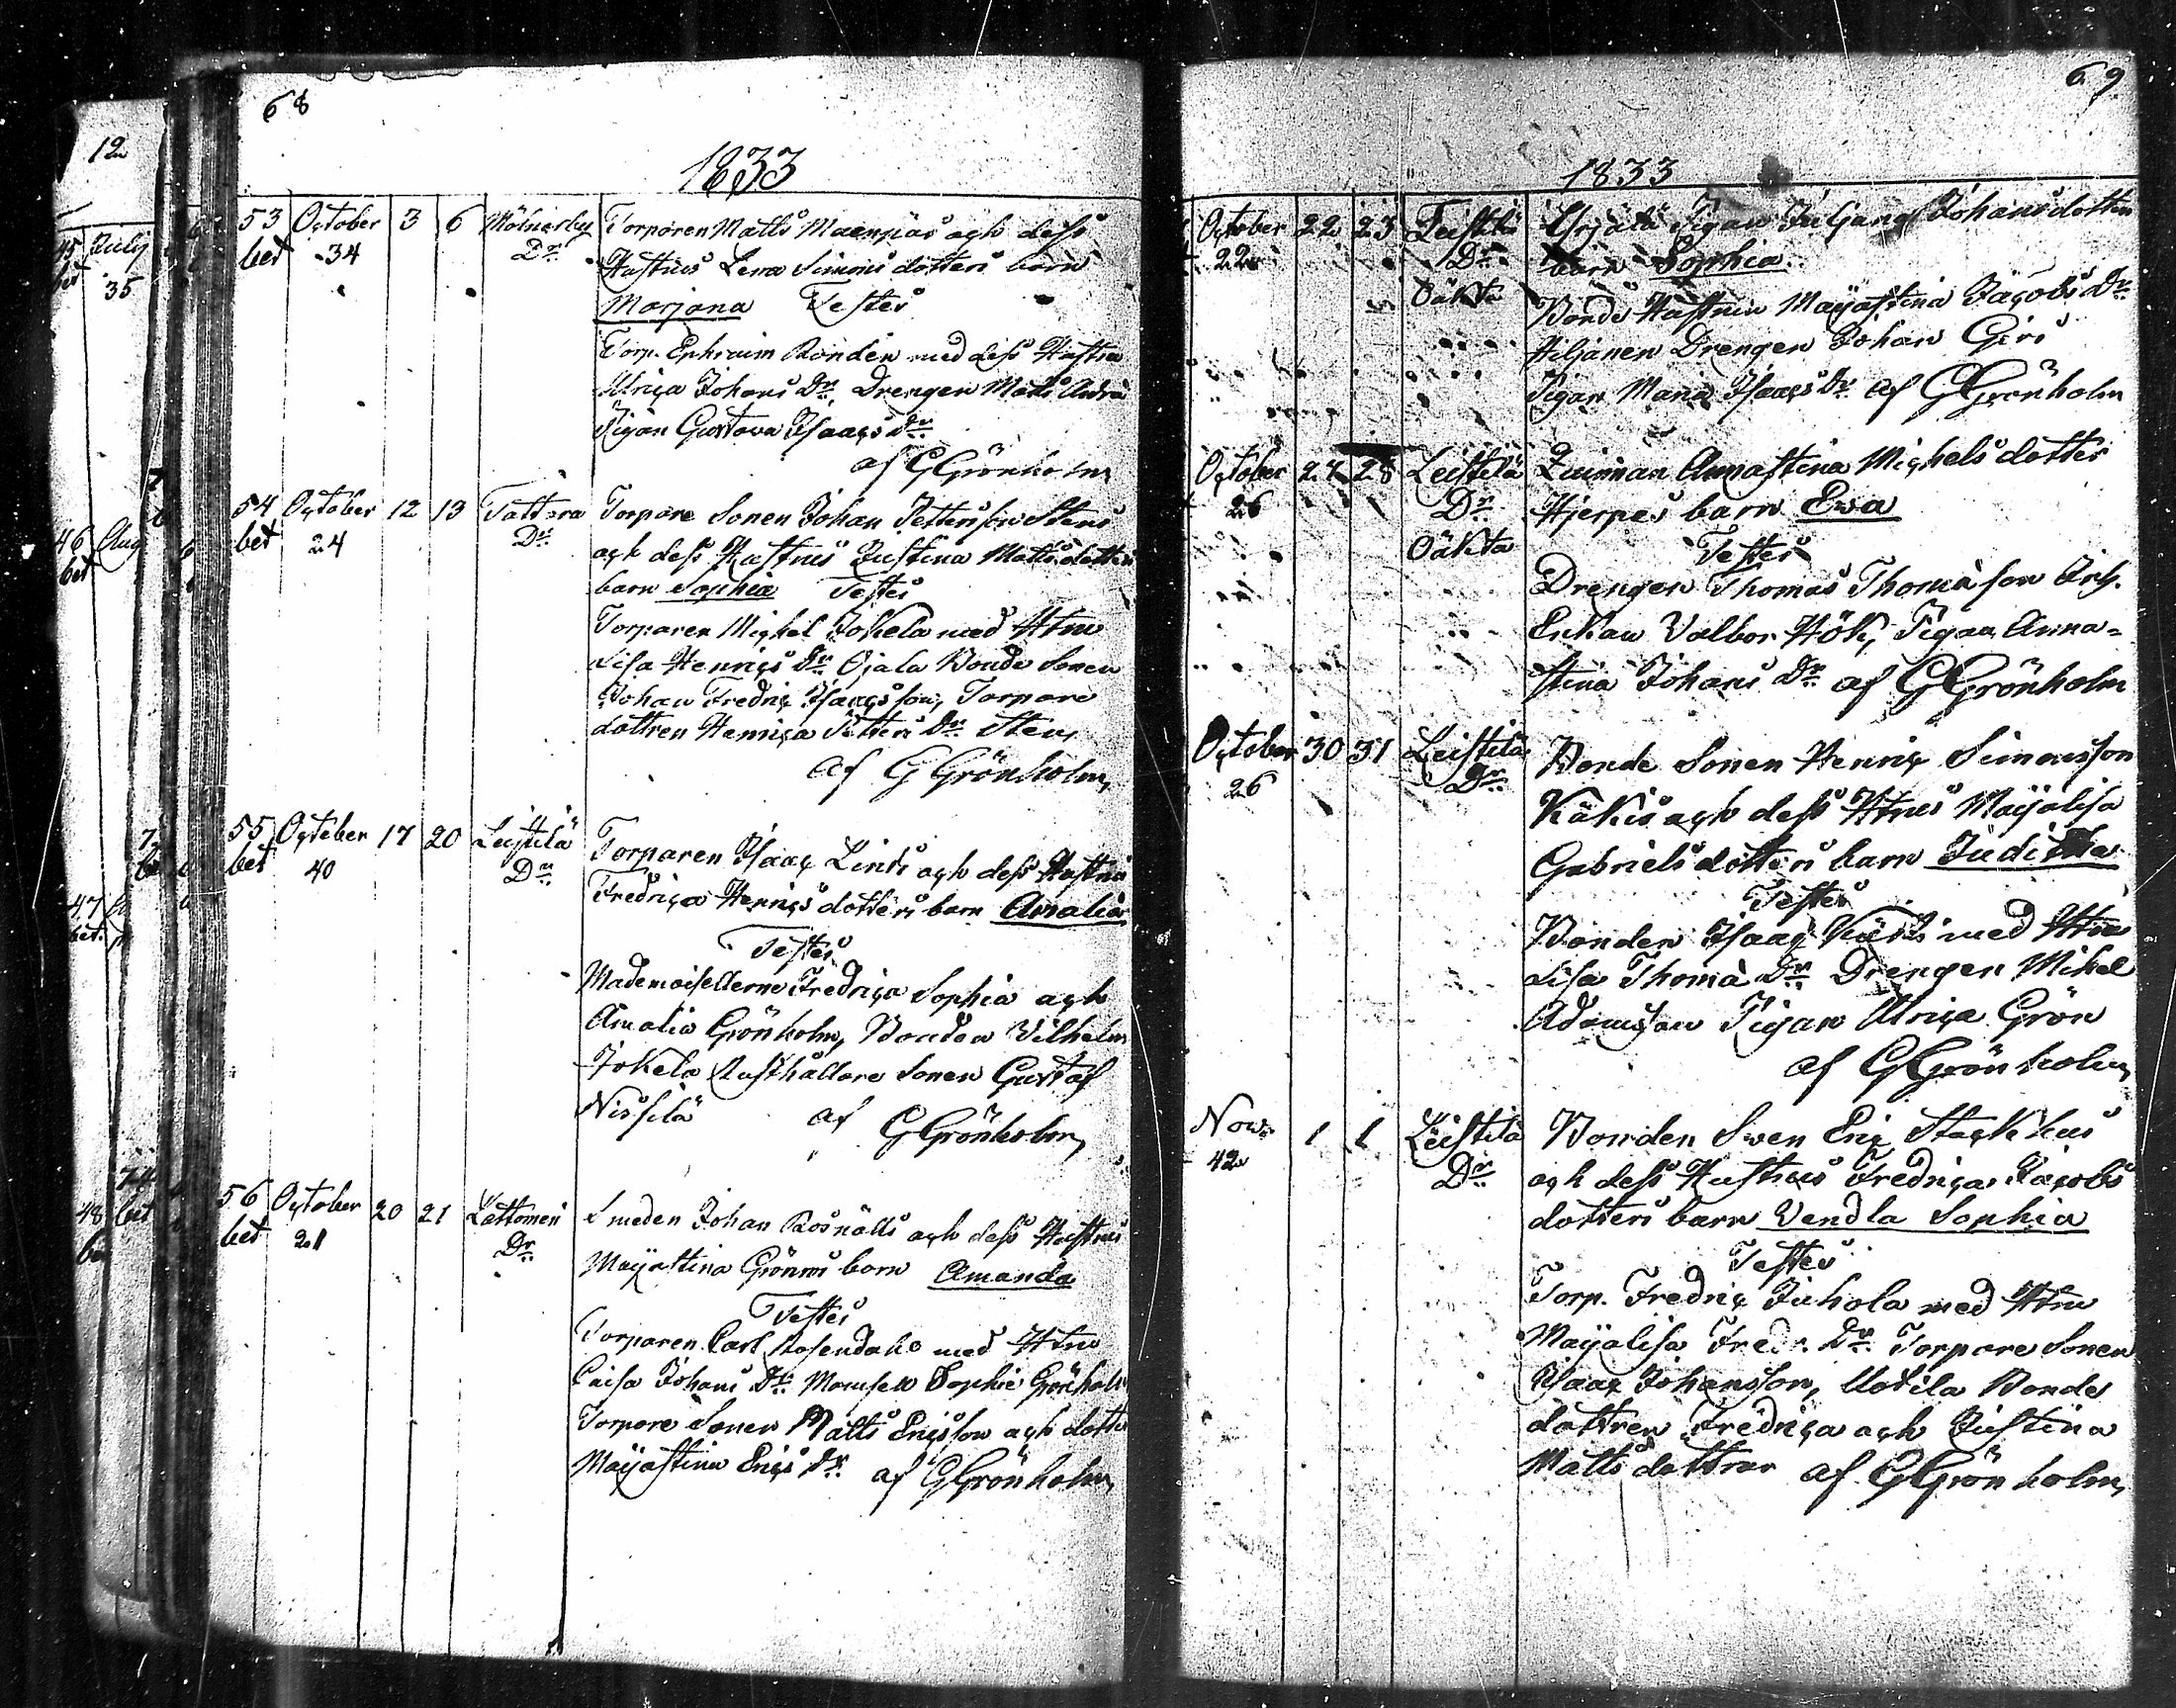 68
1833
53 October 3 6 Mölnerby Torparen Matts Maenpäs och dess
bet 34 Dr Hustrus Lena Simons dotters barn
Marjana Testes
Torp. Ephraim Bonden med dess Hustru
Ulrica Johans Dr, Drengen Matts Andrä
Pigan Gustava Isaacs Dr
af G Grönholm
54 October 12 13 Tattara Torpare Sonen Johan Pettersson Stens
bet 24 Dr och dess Hustrus Justina Matts dotters
barn Sophia Testes
Torparen Michel Jokela med Htru
Lisa Henrics Dr Ojala Bonde Sonen
Johan Fredric Isaacsson, Torpare
dottren Henrica Petters Dr Sten,
af G Grönholm,
55 October 17 20 Leistilä Torparen Isaac Linds och dess Hustru
bet 40 Dr Fredrica Henrics dotters barn Amalia
Testes
Mademoisellerne Fredrica Sophia och
Amalia Grönholm, Bonden Vilhelm
Jokela Rusthållare Sonen Gustaf
Nissilä af G Grönholm,
56 October 20 21 Lattomeri Smeden Johan Rosnälls och dess Hustrus
bet 21 Dr Majastina Grönros barn Amanda
Testes
Torparen Carl Rosendahl med Htru
Caisa Johans Dr Mamsell Sophie Grönholm
Torpare Sonen Matts Ericsson och dotter
Majastina Erics Dr af G Grönholm,
69
1833
October 22 23 Leistilä Pigan Juljana Johansdotters
22 Dr barn Sophia
Oäkta Bonde Hustrun Majastina Jacobs Dr
Viljanen Drengen Johan Girs
Pigan Maria Isaacs Dr af G Grönholm
October 27 28 Leistilä Quinnan Annastina Michels dotter
26 Dr Hjerpes barn Ewa
Oäkta Testes
Drengen Thomas Thomasson
Enkan Valbor Hök, Pigan Anna-
stina Johans Dr af G Grönholm
October 30 31 Leistilä Bonde Sonen Henric Simonsson
26 Dr Käkis och dess Htrus Majalisa
Gabriels dotters barn Juditha
Testes
Bonden Isaac med Htru
Lisa Thoma Dr Drengen Mikel
Adamsson Pigan Ulrica Grön
af G Grönholm,
Now. 1 1 Leistilä Bonden Swen Eric Stackhus
42 Dr och dess Hustrus Fredrica Jacobs
dotters barn Vendla Sophia
Testes
Torp. Fredric Juhola med Htru
Majalisa Fredr. Dr Torpare Sonen
Isaac Johansson, Uotila Bonde
dottren Fredrica och Justina
Matts dottrar af G Grönholm,